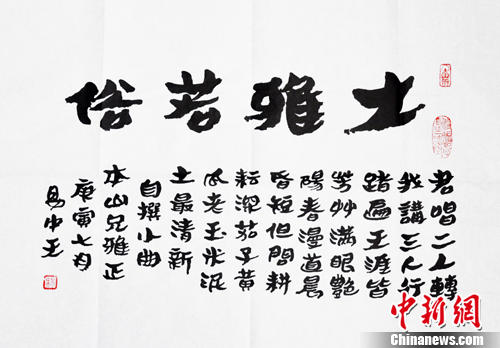 大雅若俗
君唱二人轉
我講三人行
踏遍天涯皆
芳艸滿眼艷
陽春漫道晨
昏短但問耕
耘深茄子黃
瓜老玉米泥
土最清新
自撰小曲
本山兄雅正
庚寅七月
易中天
中新網
www.chinanews.com